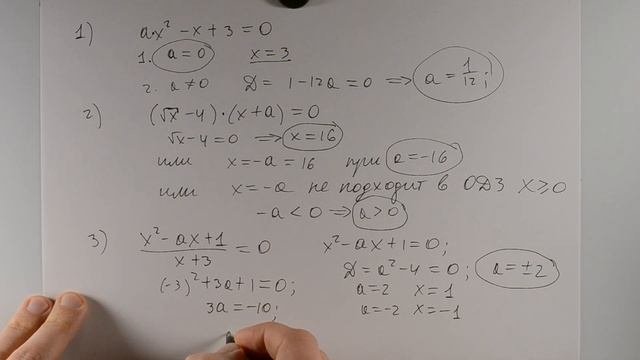 1) ax² - x + 3 = 0
1. a = 0 x = 3
2. a ≠ 0 D = 1 - 12a = 0 => a = 1/12;
2) (√x - 4) · (x + a) = 0
√x - 4 = 0 => x = 16
или x = -a = 16 при a = -16
или x = -a не подходит в ОДЗ x ≥ 0
-a < 0 => a > 0
3) (x² - ax + 1)/(x + 3) = 0 x² - ax + 1 = 0;
D = a² - 4 = 0; a = ±2
(-3)² + 3a + 1 = 0; a = 2 x = 1
3a = -10; a = -2 x = -1